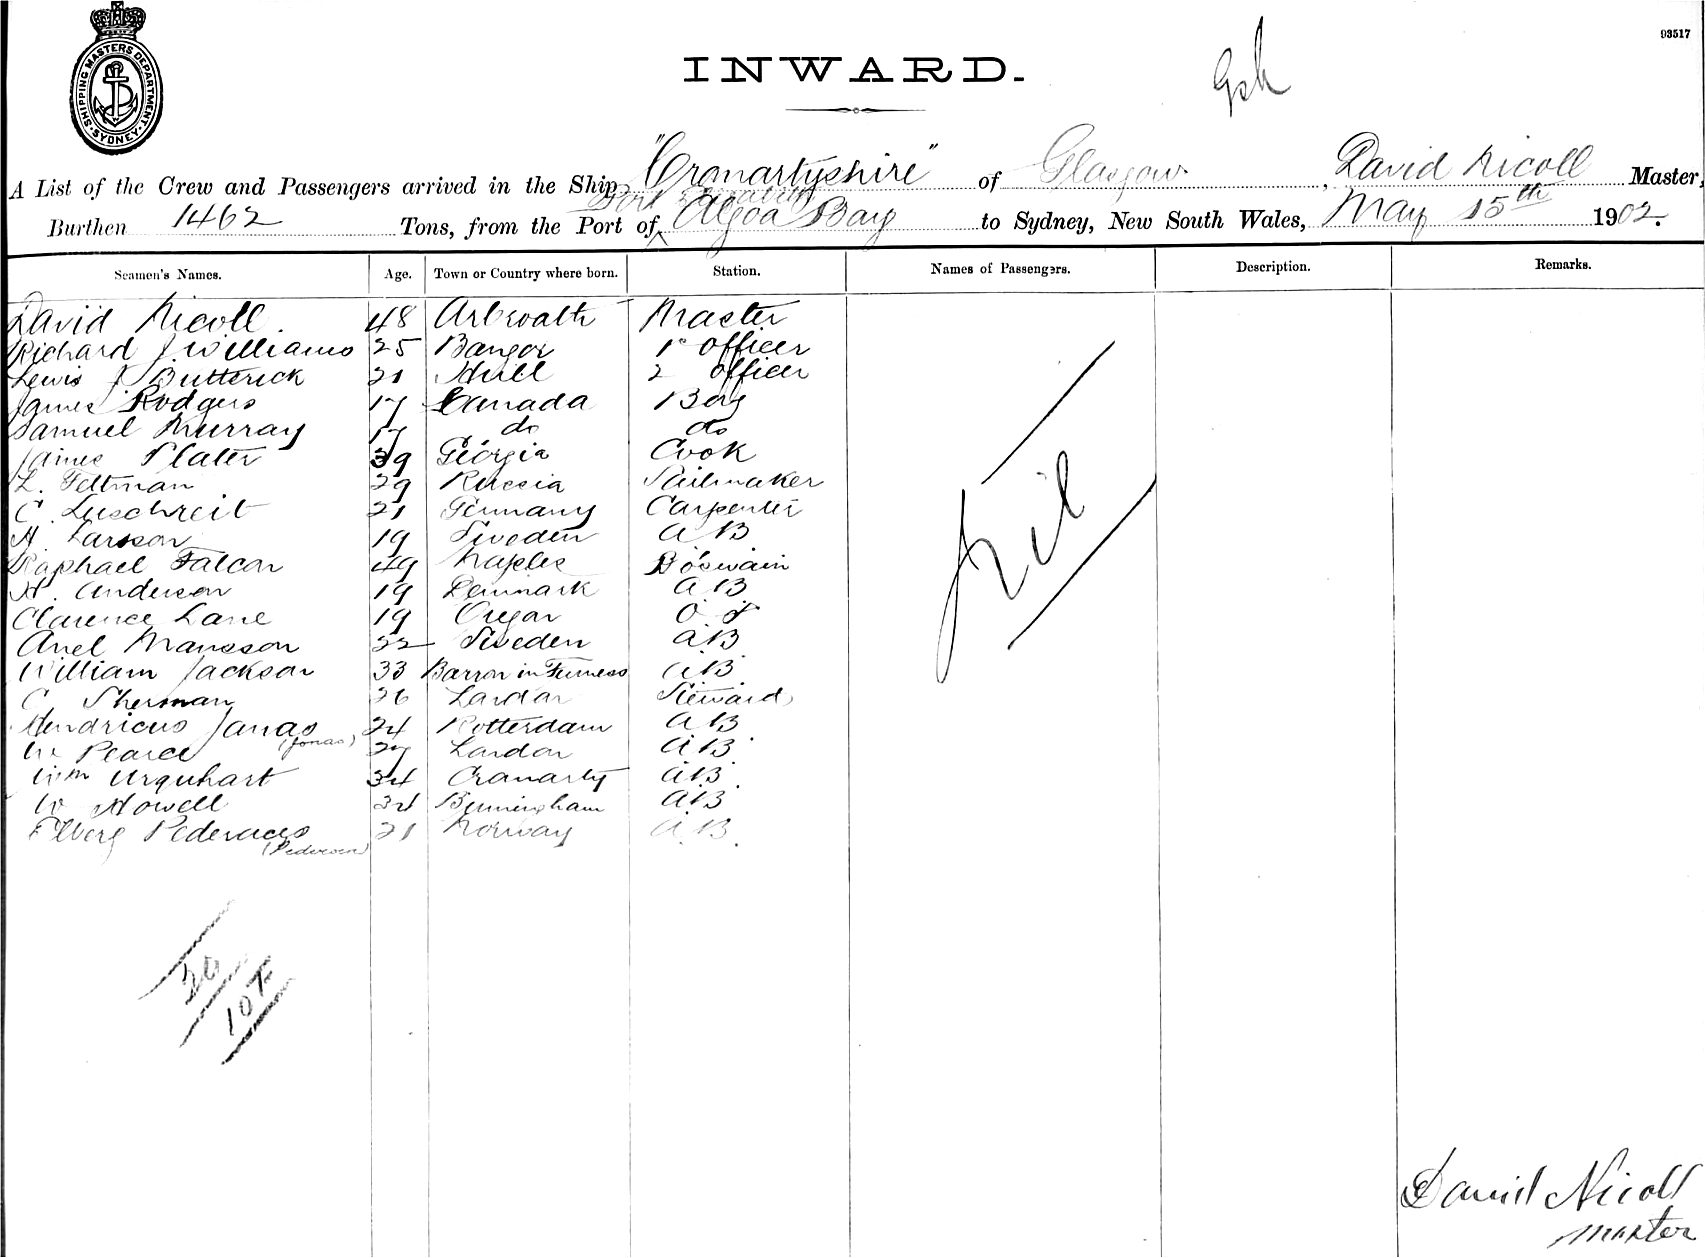 SHIPPING MASTERS DEPARTMENT. SYDNEY.
93517
INWARD.
A List of the Crew and Passengers arrived in the Ship "Cromartyshire" of Glasgow, David Nicoll Master,
Port Elizabeth
Burthen 1462 Tons, from the Port of Algoa Bay to Sydney, New South Wales, May 15th 1902.
Seamen's Names. Age. Town or Country where born. Station. Names of Passengers. Description. Remarks.
David Nicoll. 48 Arbroath Master
Richard J Williams 25 Bangor 1st Officer
Lewis J Butterick 21 Hull 2 Officer
James Rodgers 17 Canada Boy
Samuel Murray 17 do do
James Slater 39 Georgia Cook
L. Feltman 29 Russia Sailmaker
C. Luschreit 21 Germany Carpenter
H. Larsson 19 Sweden AB
Raphael Falcon 49 Naples Boswain
H. Anderson 19 Denmark AB
Clarence Lane 19 Oregon O.S
Axel Mansson 22 Sweden AB
William Jackson 33 Barron in Furness AB
C Sherman 26 London Steward
Hendricus Janas (Jonas) 24 Rotterdam AB
W Pearce 27 London AB
Wm Urquhart 34 Cromarty AB
W Howell 34 Birmingham AB
Elberg (Pedersen) 21 Norway AB
Nil
20
David Nicoll
Master